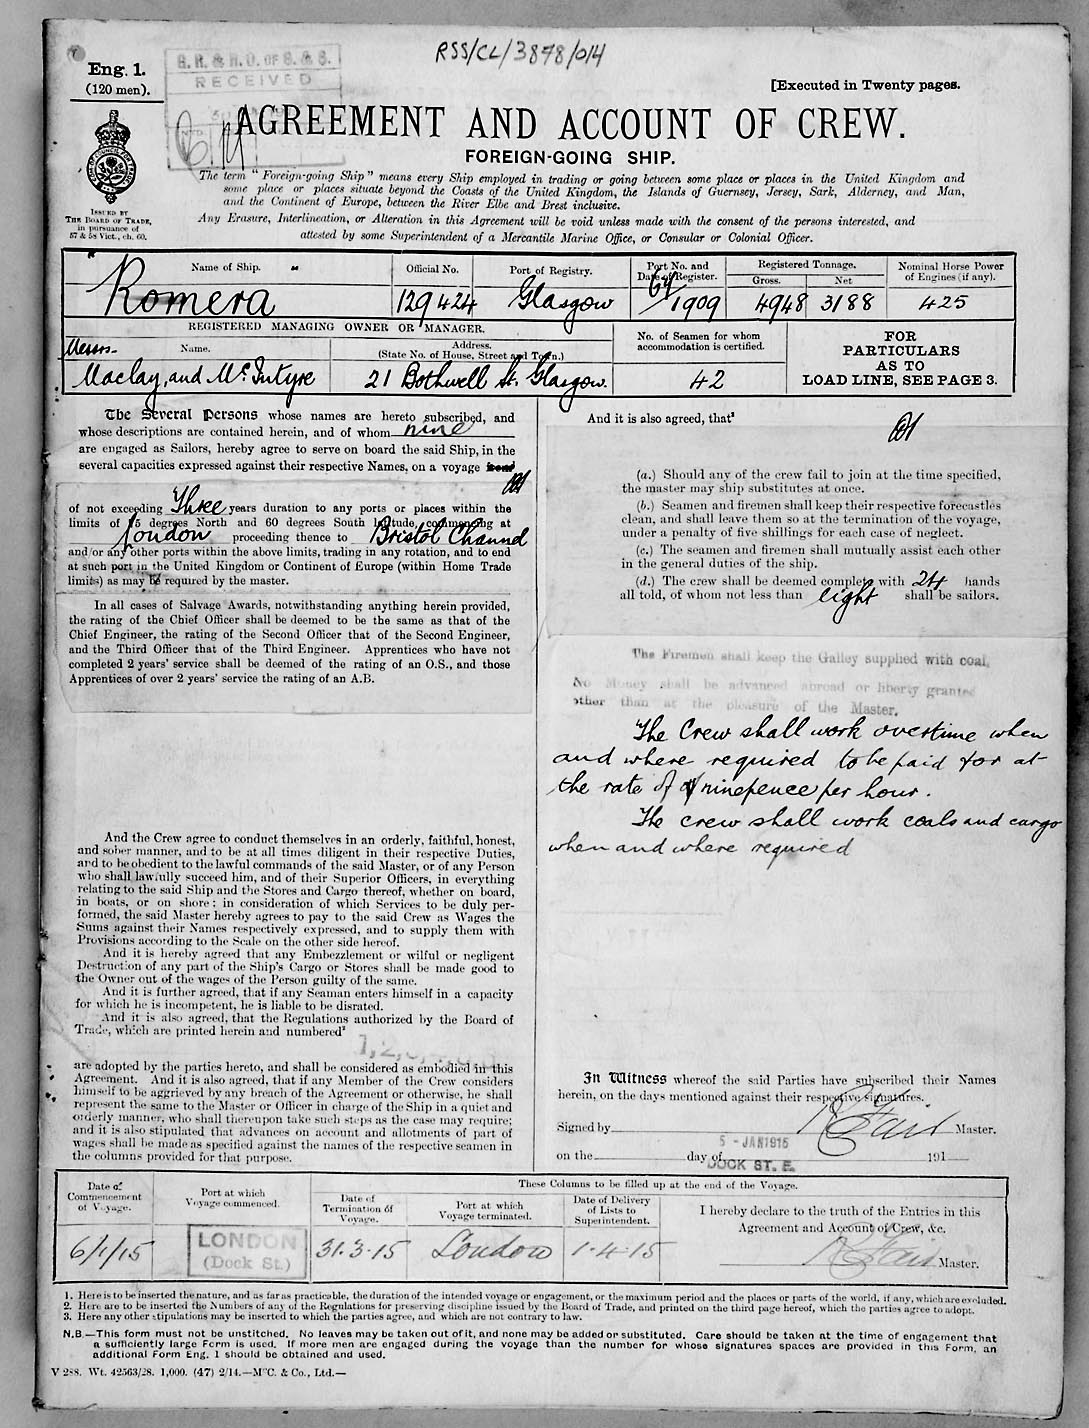 RSS/CL/3878/014
Eng. 1.
(120 men).
G. R. & R. O. OF S. & S.
RECEIVED
[Executed in Twenty pages.
AGREEMENT AND ACCOUNT OF CREW.
FOREIGN-GOING SHIP.
The term "Foreign-going Ship" means every Ship employed in trading or going between some place or places in the United Kingdom and
some place or places situate beyond the Coasts of the United Kingdom, the Islands of Guernsey, Jersey, Sark, Alderney, and Man,
and the Continent of Europe, between the River Elbe and Brest inclusive.
Any Erasure, Interlineation, or Alteration in this Agreement will be void unless made with the consent of the persons interested, and
attested by some Superintendent of a Mercantile Marine Office, or Consular or Colonial Officer.
ISSUED BY
THE BOARD OF TRADE,
in pursuance of
57 & 58 Vict., ch. 60.
Name of Ship. Official No. Port of Registry. Port No. and Date of Register. Registered Tonnage. Gross. Net Nominal Horse Power of Engines (if any).
Romera 129424 Glasgow 64/1909 4948 3188 425
REGISTERED MANAGING OWNER OR MANAGER.
Name. Address. (State No. of House, Street and Town.) No. of Seamen for whom accommodation is certified.
Messrs. Maclay, and McIntyre 21 Bothwell St. Glasgow. 42
FOR
PARTICULARS
AS TO
LOAD LINE, SEE PAGE 3.
The Several Persons whose names are hereto subscribed, and
whose descriptions are contained herein, and of whom nine
are engaged as Sailors, hereby agree to serve on board the said Ship, in the
several capacities expressed against their respective Names, on a voyage
of not exceeding Three years duration to any ports or places within the
limits of 75 degrees North and 60 degrees South latitude, commencing at
London proceeding thence to Bristol Channel
and/or any other ports within the above limits, trading in any rotation, and to end
at such port in the United Kingdom or Continent of Europe (within Home Trade
limits) as may be required by the master.
In all cases of Salvage Awards, notwithstanding anything herein provided,
the rating of the Chief Officer shall be deemed to be the same as that of the
Chief Engineer, the rating of the Second Officer that of the Second Engineer,
and the Third Officer that of the Third Engineer. Apprentices who have not
completed 2 years' service shall be deemed of the rating of an O.S., and those
Apprentices of over 2 years' service the rating of an A.B.
And the Crew agree to conduct themselves in an orderly, faithful, honest,
and sober manner, and to be at all times diligent in their respective Duties,
and to be obedient to the lawful commands of the said Master, or of any Person
who shall lawfully succeed him, and of their Superior Officers, in everything
relating to the said Ship and the Stores and Cargo thereof, whether on board,
in boats, or on shore: in consideration of which Services to be duly per-
formed, the said Master hereby agrees to pay to the said Crew as Wages the
Sums against their Names respectively expressed, and to supply them with
Provisions according to the Scale on the other side hereof.
And it is hereby agreed that any Embezzlement or wilful or negligent
Destruction of any part of the Ship's Cargo or Stores shall be made good to
the Owner out of the wages of the Person guilty of the same.
And it is further agreed, that if any Seaman enters himself in a capacity
for which he is incompetent, he is liable to be disrated.
And it is also agreed, that the Regulations authorized by the Board of
Trade, which are printed herein and numbered²
are adopted by the parties hereto, and shall be considered as embodied in this
Agreement. And it is also agreed, that if any Member of the Crew considers
himself to be aggrieved by any breach of the Agreement or otherwise, he shall
represent the same to the Master or Officer in charge of the Ship in a quiet and
orderly manner, who shall thereupon take such steps as the case may require;
and it is also stipulated that advances on account and allotments of part of
wages shall be made as specified against the names of the respective seamen in
the columns provided for that purpose.
And it is also agreed, that³
(a.) Should any of the crew fail to join at the time specified,
the master may ship substitutes at once.
(b.) Seamen and firemen shall keep their respective forecastles
clean, and shall leave them so at the termination of the voyage,
under a penalty of five shillings for each case of neglect.
(c.) The seamen and firemen shall mutually assist each other
in the general duties of the ship.
(d.) The crew shall be deemed complete with 24 hands
all told, of whom not less than eight shall be sailors.
The Firemen shall keep the Galley supplied with coal.
No Money shall be advanced abroad or liberty granted
other than at the pleasure of the Master.
The Crew shall work overtime when
and where required to be paid for at
the rate of ninepence per hour.
The crew shall work coals and cargo
when and where required
In Witness whereof the said Parties have subscribed their Names
herein, on the days mentioned against their respective signatures.
Signed by R Fair Master.
5 - JAN 1915
on the day of 191
DOCK ST. E.
These Columns to be filled up at the end of the Voyage.
Date of Commencement of Voyage. Port at which Voyage commenced. Date of Termination of Voyage. Port at which Voyage terminated. Date of Delivery of Lists to Superintendent.
6/1/15 LONDON (Dock St.) 31.3.15 London 1.4.15
I hereby declare to the truth of the Entries in this
Agreement and Account of Crew, &c.
R Fair Master.
1. Here is to be inserted the nature, and as far as practicable, the duration of the intended voyage or engagement, or the maximum period and the places or parts of the world, if any, which are excluded.
2. Here are to be inserted the Numbers of any of the Regulations for preserving discipline issued by the Board of Trade, and printed on the third page hereof, which the parties agree to adopt.
3. Here any other stipulations may be inserted to which the parties agree, and which are not contrary to law.
N.B.—This form must not be unstitched. No leaves may be taken out of it, and none may be added or substituted. Care should be taken at the time of engagement that
a sufficiently large Form is used. If more men are engaged during the voyage than the number for whose signatures spaces are provided in this Form, an
additional Form Eng. 1 should be obtained and used.
V 288. Wt. 42563/28. 1,000. (47) 2/14.—McC. & Co., Ltd.—